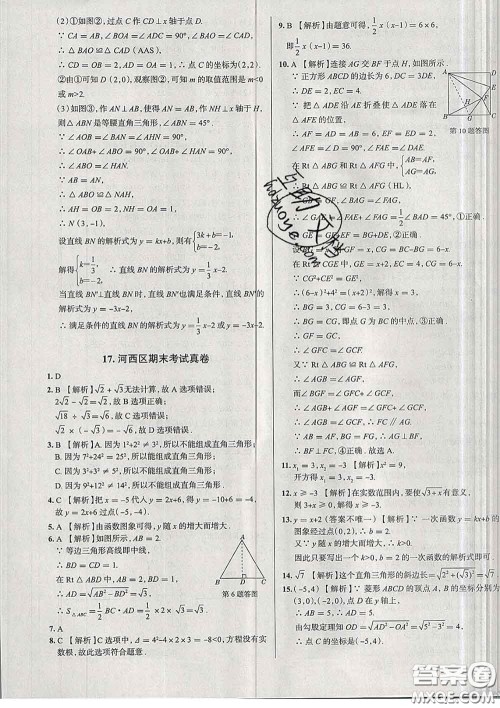 (2)①如图②,过点 C 作 CD⊥x 轴于点 D.
∵ CA = AB, ∠BOA = ∠ADC = 90°, ∠BAO =
∠ACD, ∴ △ABO ≌ △CAD (AAS),
∴ CD = OB = 2, AD = OA = 1,
∴ CD = OD = 2, ∴ 点 C 的坐标为(2,2).
②由①可知 D(2,0),观察图②,可知 m 的取值范围是 m<0
或 m>2.
(3)如图③,作 AN⊥AB,使得 AN = AB,作 NH⊥x 轴于 H,
则△ABN 是等腰直角三角形,∠ABN = 45°.
∵ ∠AOB = ∠BAN = ∠AHN = 90°,
∴ ∠ABO = ∠HAN.
∵ AB = AN,
∴ △ABO ≌ △NAH,
∴ AH = OB = 2, NH = OA = 1,
∴ N(3,-1).
设直线 BN 的解析式为 y = kx+b,则有{3k+b=-1, b=-2.
解得{k=1/3, b=-2. ∴ 直线 BN 的解析式为 y = 1/3 x-2.
当直线 BN'⊥直线 BN 时,直线 BN'也满足条件,直线 BN'的解
析式为 y = -3x-2,
∴ 满足条件的直线 BN 的解析式为 y = 1/3 x-2 或 y = -3x-2.
17. 河西区期末考试真卷
1. D
2. B 【解析】√2 + √3 无法计算,故 A 选项错误;
2√2 - √2 = √2,故 B 选项正确;
√18 ÷ √3 = √6,故 C 选项错误;
√2 × (-√3) = -√6,故 D 选项错误.
3. B 【解析】A. 因为 1²+2² ≠ 3²,所以不能组成直角三角形;
B. 因为 7²+24² = 25²,所以能组成直角三角形;
C. 因为 3²+3² ≠ 5²,所以不能组成直角三角形;
D. 因为 1²+1² ≠ 2²,所以不能组成直角三角形.
4. C 【解析】把 x = -5 代入 y = 2x+6,得 y = -10+6 = -4,
故 C 选项正确.
5. A 【解析】由函数图象可知,y 随 x 的增大而增大.
6. B 【解析】如图所示.
∵ 等边三角形高线即中线,
∴ BD = CD = 1,
∵ AB = 2,
在 Rt △ABD 中, AD =
√(AB²-BD²) = √3,
∴ S△ABC = 1/2 BC·AD = 1/2 × 2 × √3 = √3.
A
B D C
第 6 题答图
7. A
8. C 【解析】C 选项中,Δ = 4²-4×2×3 = -8<0,方程没有实
数根,故此选项符合题意.
9. B 【解析】由题意可得, 1/2 x(x-1) = 6×6,
即 1/2 x(x-1) = 36.
10. A 【解析】连接 AG 交 BF 于点 H,如图所示.
∵ 正方形 ABCD 的边长为 6,DC = 3DE,
∴ DE = 2, EC = 4.
∵ 把 △ADE 沿 AE 折叠使 △ADE 落在
△AFE 的位置,
∴ AF = AD = 6, EF = ED = 2, ∠AFE =
∠D = 90°, ∠FAE = ∠DAE.
在 Rt △ABG 和 Rt △AFG 中,{AB=AF, AG=AG,
∴ Rt △ABG ≌ Rt △AFG (HL),
∴ GB = GF, ∠BAG = ∠FAG,
∴ ∠GAE = ∠FAE+∠FAG = 1/2 ∠BAD = 45°,①正确.
∴ GE = GF+EF = BG+DE,②正确.
设 BG = x,则 GF = x, CG = BC-BG = 6-x.
在 Rt △CGE 中, GE = x+2, EC = 4, CG = 6-x,
∵ CG²+CE² = GE²,
∴ (6-x)²+4² = (x+2)²,解得 x = 3,
∴ BG = CG = 3,即点 G 为 BC 的中点,③正确.
∴ GF = GC,
∴ ∠GFC = ∠GCF.
又 ∵ Rt △ABG ≌ Rt △AFG,
∴ ∠AGB = ∠AGF,
∴ ∠AGB = ∠GCF,
∴ CF∥AG,
∵ AB = AF, BG = FG,
∴ BF⊥AG,
∴ BF⊥CF,④正确.
故选 A.
第 10 题答图
11. x₁ = 3, x₂ = -3 【解析】x² = 9,
开方得 x₁ = 3, x₂ = -3.
12. x ≥ -3 【解析】在实数范围内,要使√(x+3)有意义,
则 x+3 ≥ 0,即 x ≥ -3.
13. y = x+2 (答案不唯一) 【解析】∵ 一次函数 y = kx+b 的
图象经过点(0,2), ∴ b = 2.
又 ∵ y 随 x 的增大而增大, ∴ k>0,
因此只要写出一个 k>0, b = 2 的一次函数的解析式即可.
14. √7 【解析】这个直角三角形的斜边长=√(2²+(√3)²) = √7
15. (-5,4) 【解析】∵ 菱形 ABCD 的顶点 A, B 的坐标分别为
(3,0),
∴ AD = 5,
由勾股定理知: OD = √(AD²-OA²) = √(5²-3²) = 4,
∴ 点 C 的坐标是(-5,4).
答案圈
MXQE.COM